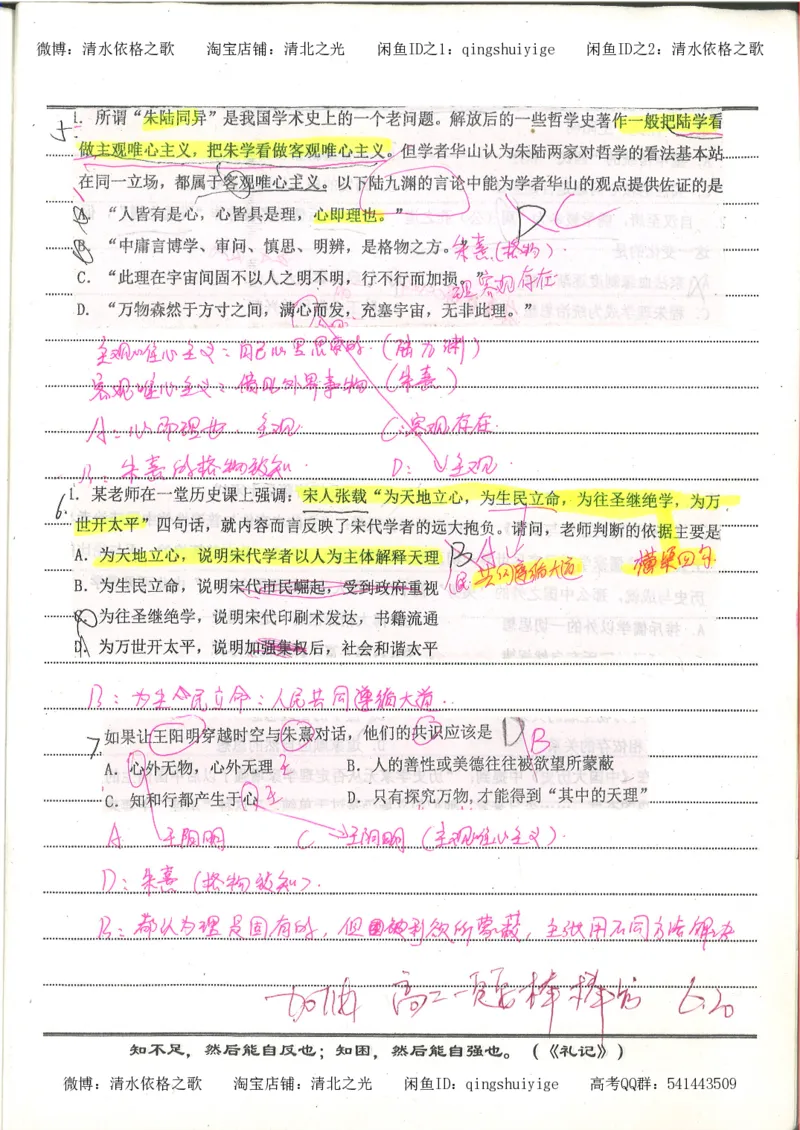 微博：清水依格之歌 淘宝店铺：清北之光 闲鱼ID之1：qingshuiyige 闲鱼ID之2：清水依格之歌
1. 所谓“朱陆同异”是我国学术史上的一个老问题。解放后的一些哲学史著作一般把陆学看
做主观唯心主义，把朱学看做客观唯心主义。但学者华山认为朱陆两家对哲学的看法基本站
在同一立场，都属于客观唯心主义。以下陆九渊的言论中能为学者华山的观点提供佐证的是
A. “人皆有是心，心皆具是理，心即理也。” D C
B. “中庸言博学、审问、慎思、明辨，是格物之方。” 朱熹(格物)
C. “此理在宇宙间固不以人之明不明，行不行而加损。” 客观存在
D. “万物森然于方寸之间，满心而发，充塞宇宙，无非此理。”
主观唯心主义：自己心里思索的.(陆九渊)
客观唯心主义：借助外界事物（朱熹）
A：心即理也. 主观 C：客观存在.
B：朱熹的格物致知. D：主观.
6.
1. 某老师在一堂历史课上强调：宋人张载“为天地立心，为生民立命，为往圣继绝学，为万
世开太平”四句话，就内容而言反映了宋代学者的远大抱负。请问，老师判断的依据主要是
A. 为天地立心，说明宋代学者以人为主体解释天理 B A 共同遵循大道 横渠四句.
B. 为生民立命，说明宋代市民崛起，受到政府重视
C. 为往圣继绝学，说明宋代印刷术发达，书籍流通
D. 为万世开太平，说明加强集权后，社会和谐太平
B：为生民立命：人民共同遵循大道..
7. 如果让王阳明穿越时空与朱熹对话，他们的共识应该是 D B
A. 心外无物，心外无理 王 B. 人的善性或美德往往被欲望所蒙蔽
C. 知和行都产生于心 王 D. 只有探究万物,才能得到“其中的天理”
A 王阳明 C 王阳明（主观唯心主义).
D：朱熹（格物致知）.
B：都认为理是固有的，但被利欲所蒙蔽，主张用不同方法解决
加油 高二一页 棒棒 6.20
知不足，然后能自反也；知困，然后能自强也。（《礼记》）
微博：清水依格之歌 淘宝店铺：清北之光 闲鱼ID：qingshuiyige 高考QQ群：541443509